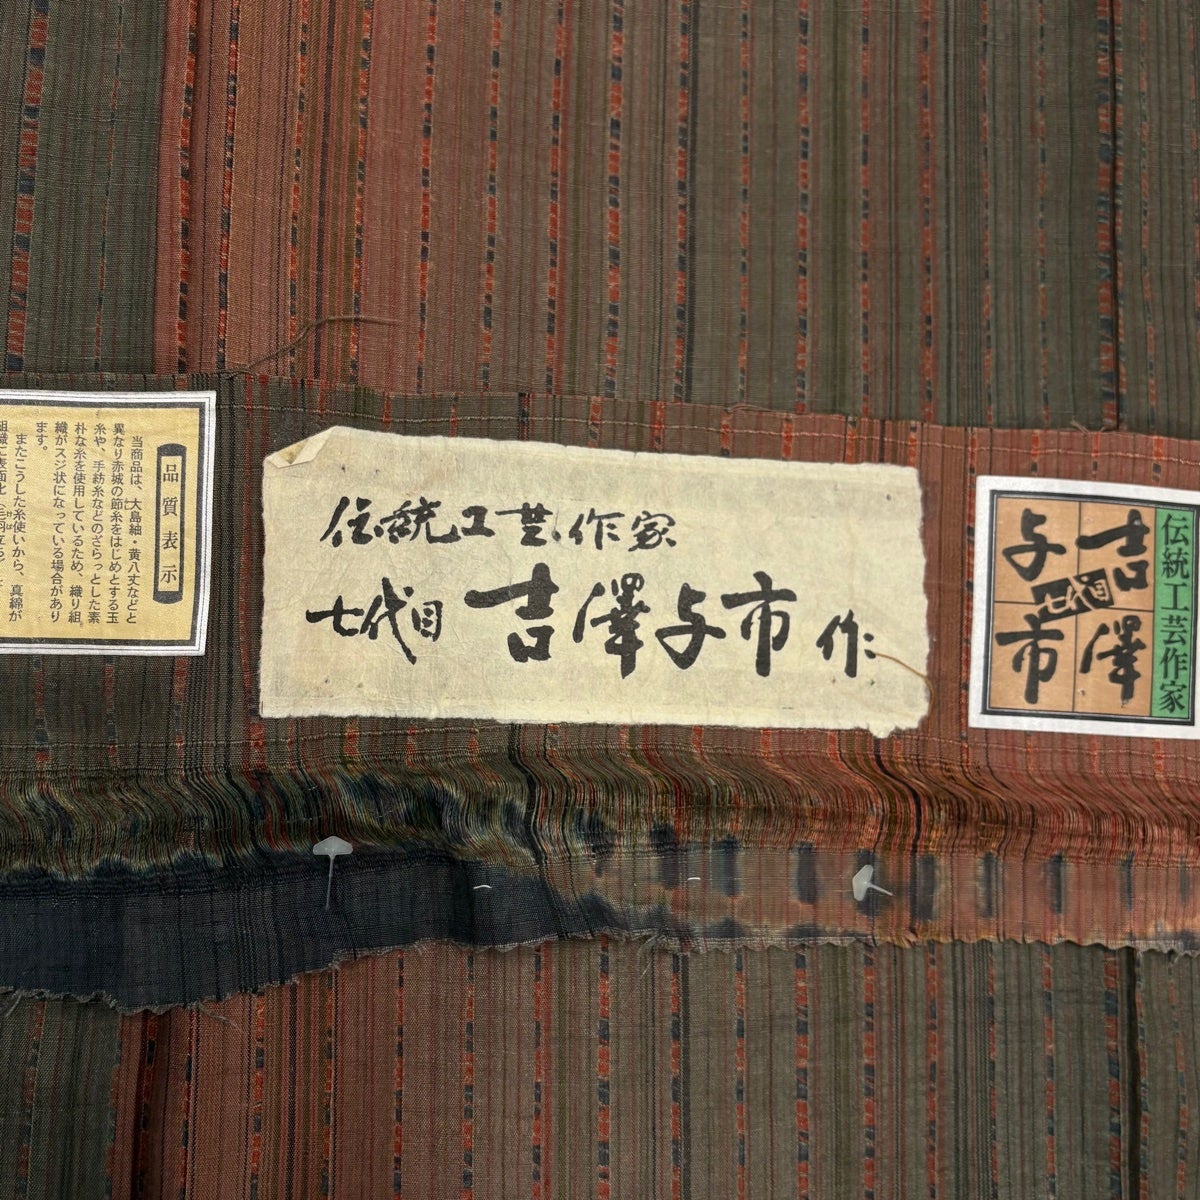 品質表示
当商品は、大島紬・黄八丈などと
異なり赤城の節糸をはじめとする玉
糸や、手紡糸などのざらっとした素
朴な糸を使用しているため、織り組
織がスジ状になっている場合があり
ます。
またこうした糸使いから、真綿が
組織に表面化（毛羽立ち）
けば
伝統工芸作家
七代目 吉澤与市 作
伝統工芸作家
吉澤
七代目
与市